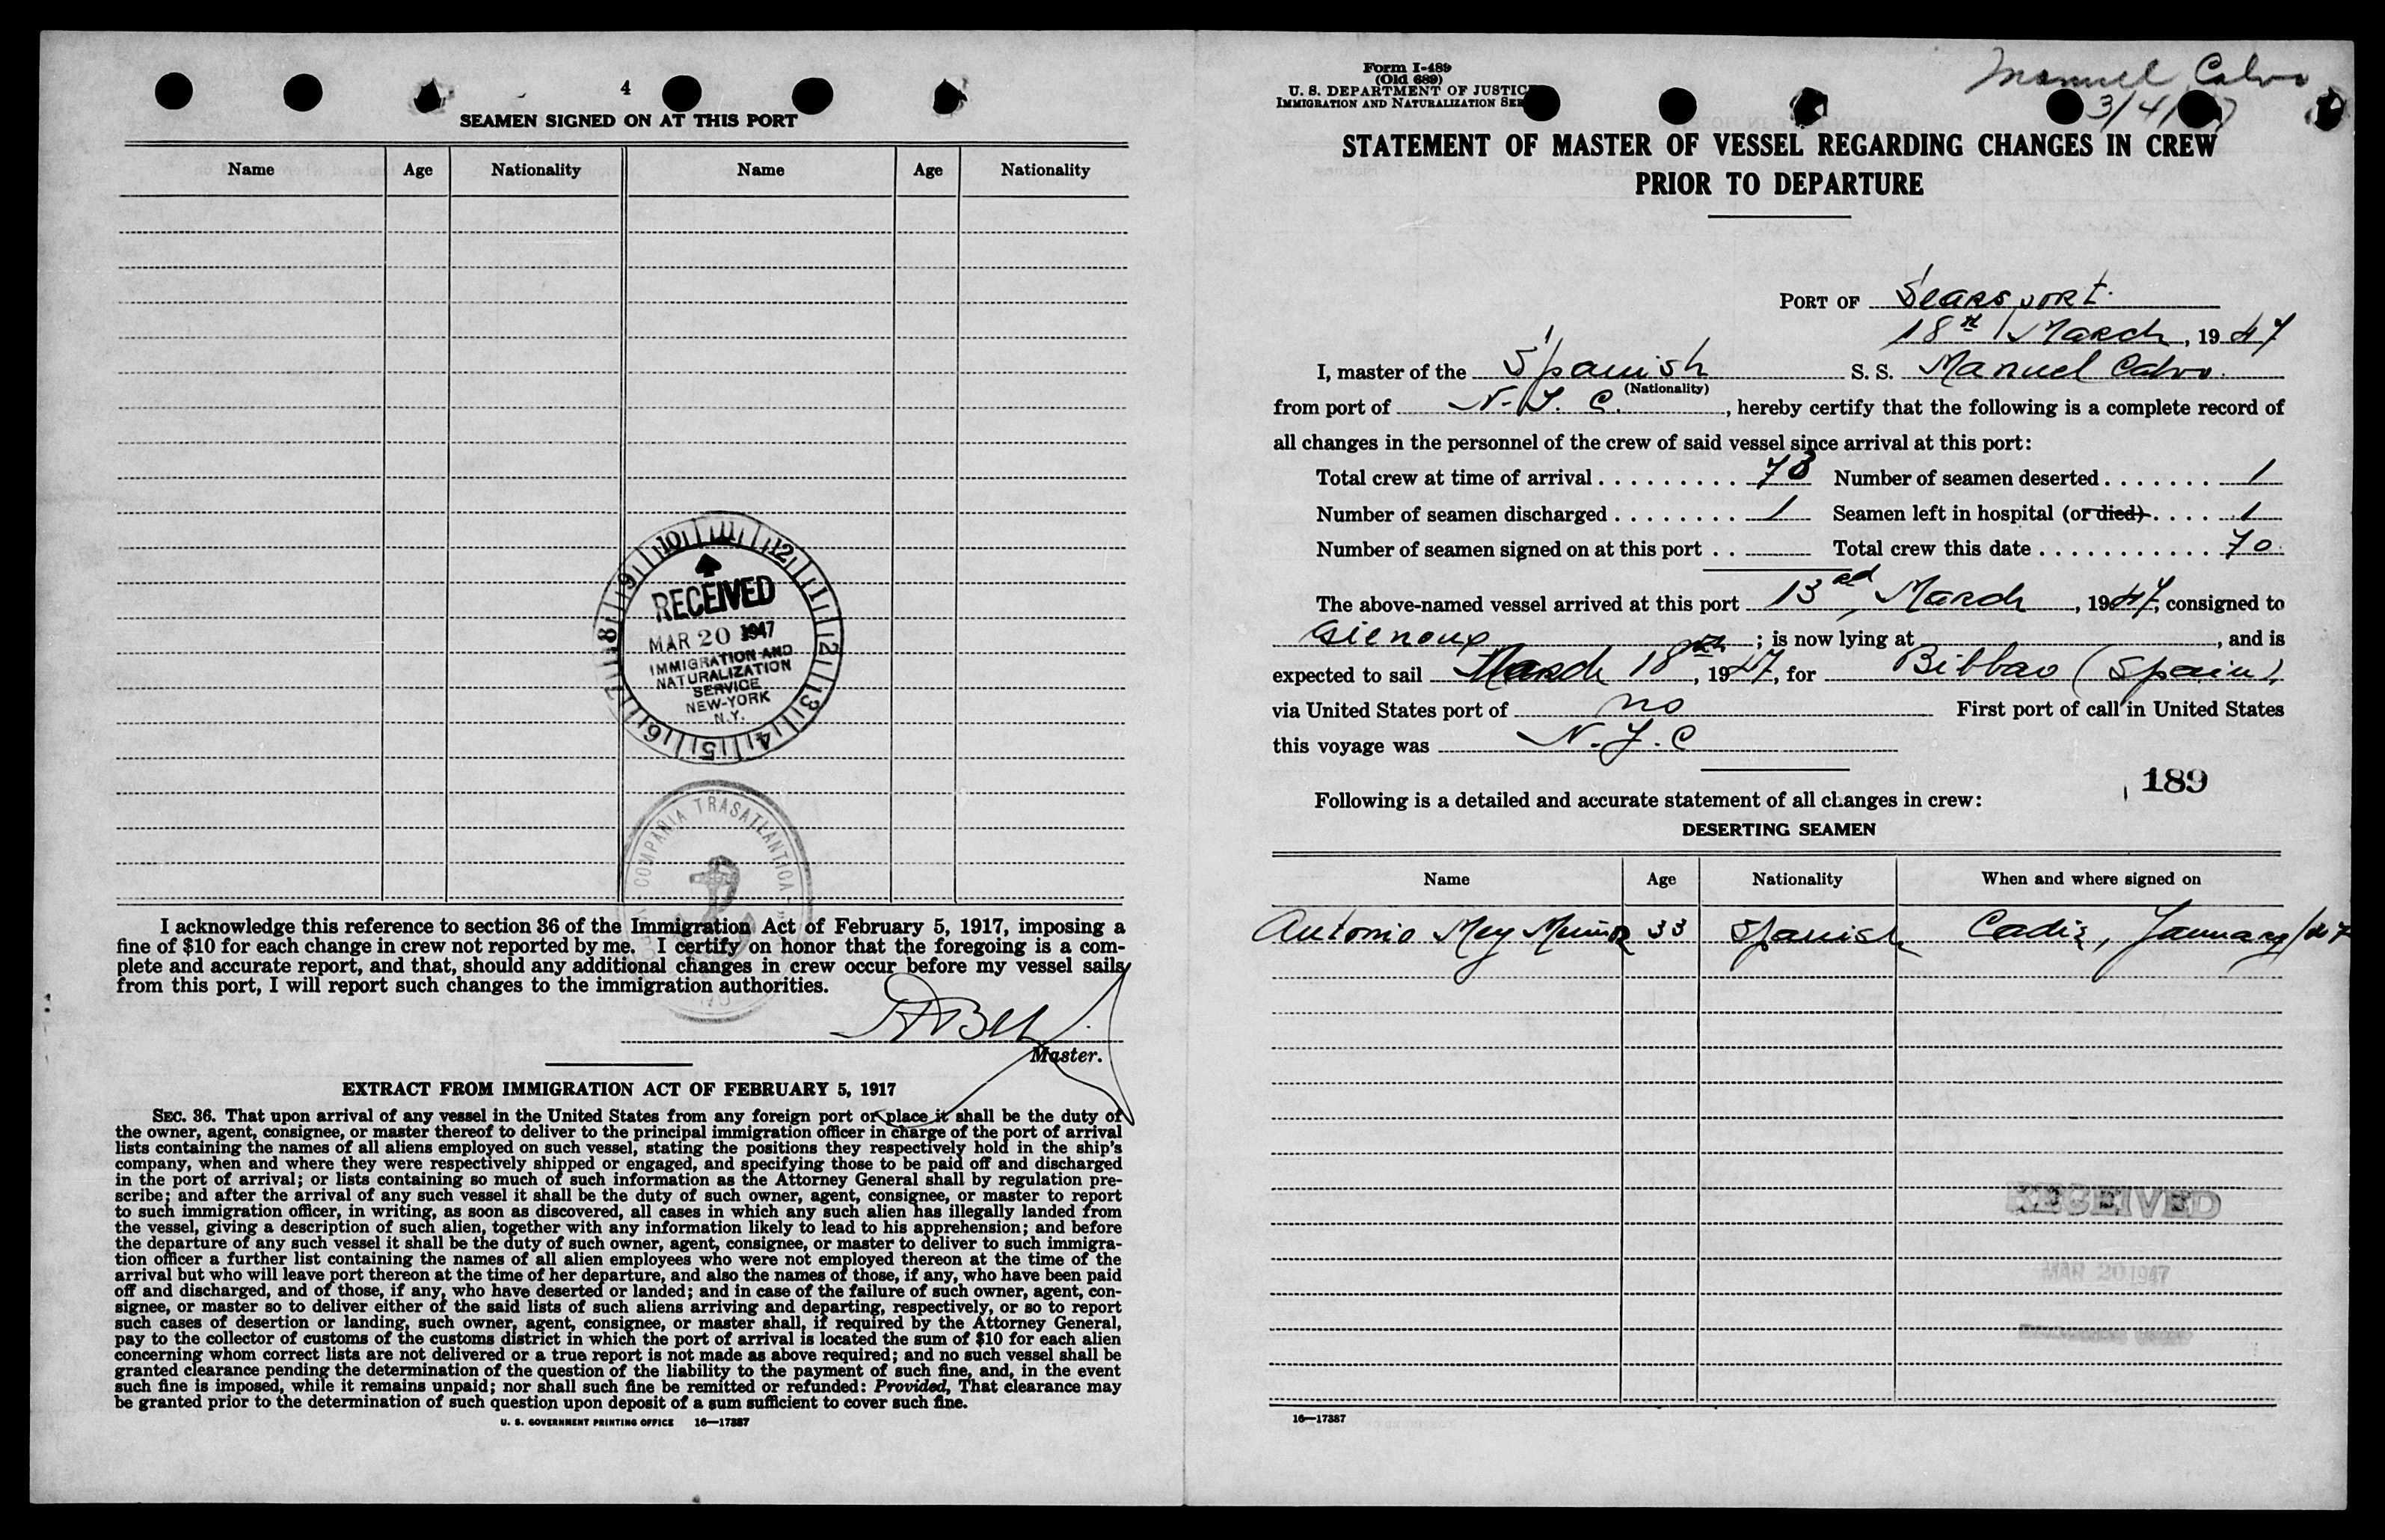 4
SEAMEN SIGNED ON AT THIS PORT
Name Age Nationality Name Age Nationality
10 11 12 1 2 3 4 5 6 7 8 9
RECEIVED
MAR 20 1947
IMMIGRATION AND
NATURALIZATION
SERVICE
NEW-YORK
N.Y.
COMPAÑIA TRASATLANTICA
I acknowledge this reference to section 36 of the Immigration Act of February 5, 1917, imposing a
fine of $10 for each change in crew not reported by me. I certify on honor that the foregoing is a com-
plete and accurate report, and that, should any additional changes in crew occur before my vessel sails
from this port, I will report such changes to the immigration authorities.
Master.
EXTRACT FROM IMMIGRATION ACT OF FEBRUARY 5, 1917
SEC. 36. That upon arrival of any vessel in the United States from any foreign port or place it shall be the duty of
the owner, agent, consignee, or master thereof to deliver to the principal immigration officer in charge of the port of arrival
lists containing the names of all aliens employed on such vessel, stating the positions they respectively hold in the ship's
company, when and where they were respectively shipped or engaged, and specifying those to be paid off and discharged
in the port of arrival; or lists containing so much of such information as the Attorney General shall by regulation pre-
scribe; and after the arrival of any such vessel it shall be the duty of such owner, agent, consignee, or master to report
to such immigration officer, in writing, as soon as discovered, all cases in which any such alien has illegally landed from
the vessel, giving a description of such alien, together with any information likely to lead to his apprehension; and before
the departure of any such vessel it shall be the duty of such owner, agent, consignee, or master to deliver to such immigra-
tion officer a further list containing the names of all alien employees who were not employed thereon at the time of the
arrival but who will leave port thereon at the time of her departure, and also the names of those, if any, who have been paid
off and discharged, and of those, if any, who have deserted or landed; and in case of the failure of such owner, agent, con-
signee, or master so to deliver either of the said lists of such aliens arriving and departing, respectively, or so to report
such cases of desertion or landing, such owner, agent, consignee, or master shall, if required by the Attorney General,
pay to the collector of customs of the customs district in which the port of arrival is located the sum of $10 for each alien
concerning whom correct lists are not delivered or a true report is not made as above required; and no such vessel shall be
granted clearance pending the determination of the question of the liability to the payment of such fine, and, in the event
such fine is imposed, while it remains unpaid; nor shall such fine be remitted or refunded: Provided, That clearance may
be granted prior to the determination of such question upon deposit of a sum sufficient to cover such fine.
U. S. GOVERNMENT PRINTING OFFICE 16—17387
Form I-489
(Old 689)
U. S. DEPARTMENT OF JUSTIC
IMMIGRATION AND NATURALIZATION SER
Manuel Calvo
3/4/ 7
STATEMENT OF MASTER OF VESSEL REGARDING CHANGES IN CREW
PRIOR TO DEPARTURE
PORT OF Searsport.
18th March, 1947
I, master of the Spanish S. S. Manuel Calvo.
(Nationality)
from port of N.Y.C., hereby certify that the following is a complete record of
all changes in the personnel of the crew of said vessel since arrival at this port:
Total crew at time of arrival . . . . . . . . . . 73 Number of seamen deserted . . . . . . . 1
Number of seamen discharged . . . . . . . . 1 Seamen left in hospital (or died) . . . . 1
Number of seamen signed on at this port . . Total crew this date . . . . . . . . . . . 70.
The above-named vessel arrived at this port 13rd March, 1947, consigned to
; is now lying at , and is
expected to sail March 18th, 1947, for Bibbao (Spain),
via United States port of no First port of call in United States
this voyage was N.Y.C
189
Following is a detailed and accurate statement of all changes in crew:
DESERTING SEAMEN
Name Age Nationality When and where signed on
Antonio Mey Muñoz 33 Spanish Cadiz, January/47
RECEIVED
MAR 20 1947
16—17387